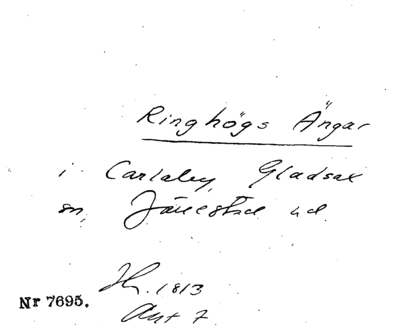 Ringhögs Ängar
i Carlaby, Gladsax
sn, Järrestad hd.
1813
Nr 7695.
Akt 7